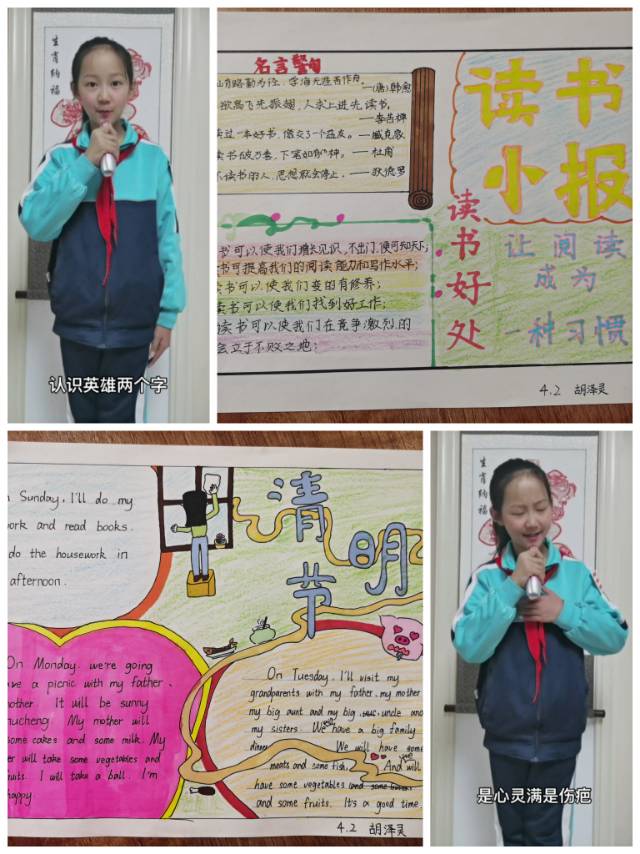 生肖纳福
认识英雄两个字
名言警句
山有路勤为径，学海无涯苦作舟。
——(唐)韩愈
欲高飞先振翅，人求上进先读书。
——李苦禅
读过一本好书，像交了一个益友。——臧克家
读书破万卷，下笔如有神。——杜甫
不读书的人，思想就会停止。——狄德罗
读书
小报
书可以使我们增长见识，不出门，便可知天下；
书可提高我们的阅读能力和写作水平；
读书可以使我们变的有修养；
读书可以使我们找到好工作；
读书可以使我们在竞争激烈的
会立于不败之地；
读书好处
让阅读
成为
一种习惯
4.2 胡泽灵
Sunday, I'll do my
work and read books.
do the housework in
afternoon.
清明节
On Monday, we're going
have a picnic with my father,
mother. It will be sunny
My mother will
some cakes and some milk. My
will take some vegetables and
fruits. I will take a ball. I'm
happy.
On Tuesday, I'll visit my
grandparents with my father, my mother
my big aunt and my big uncle and
my sisters. We have a big family
dinner. We will have some
meats and some fish. And will
have some vegetables
and some fruits. It's a good time.
4.2 胡泽灵
生肖纳福
是心灵满是伤疤